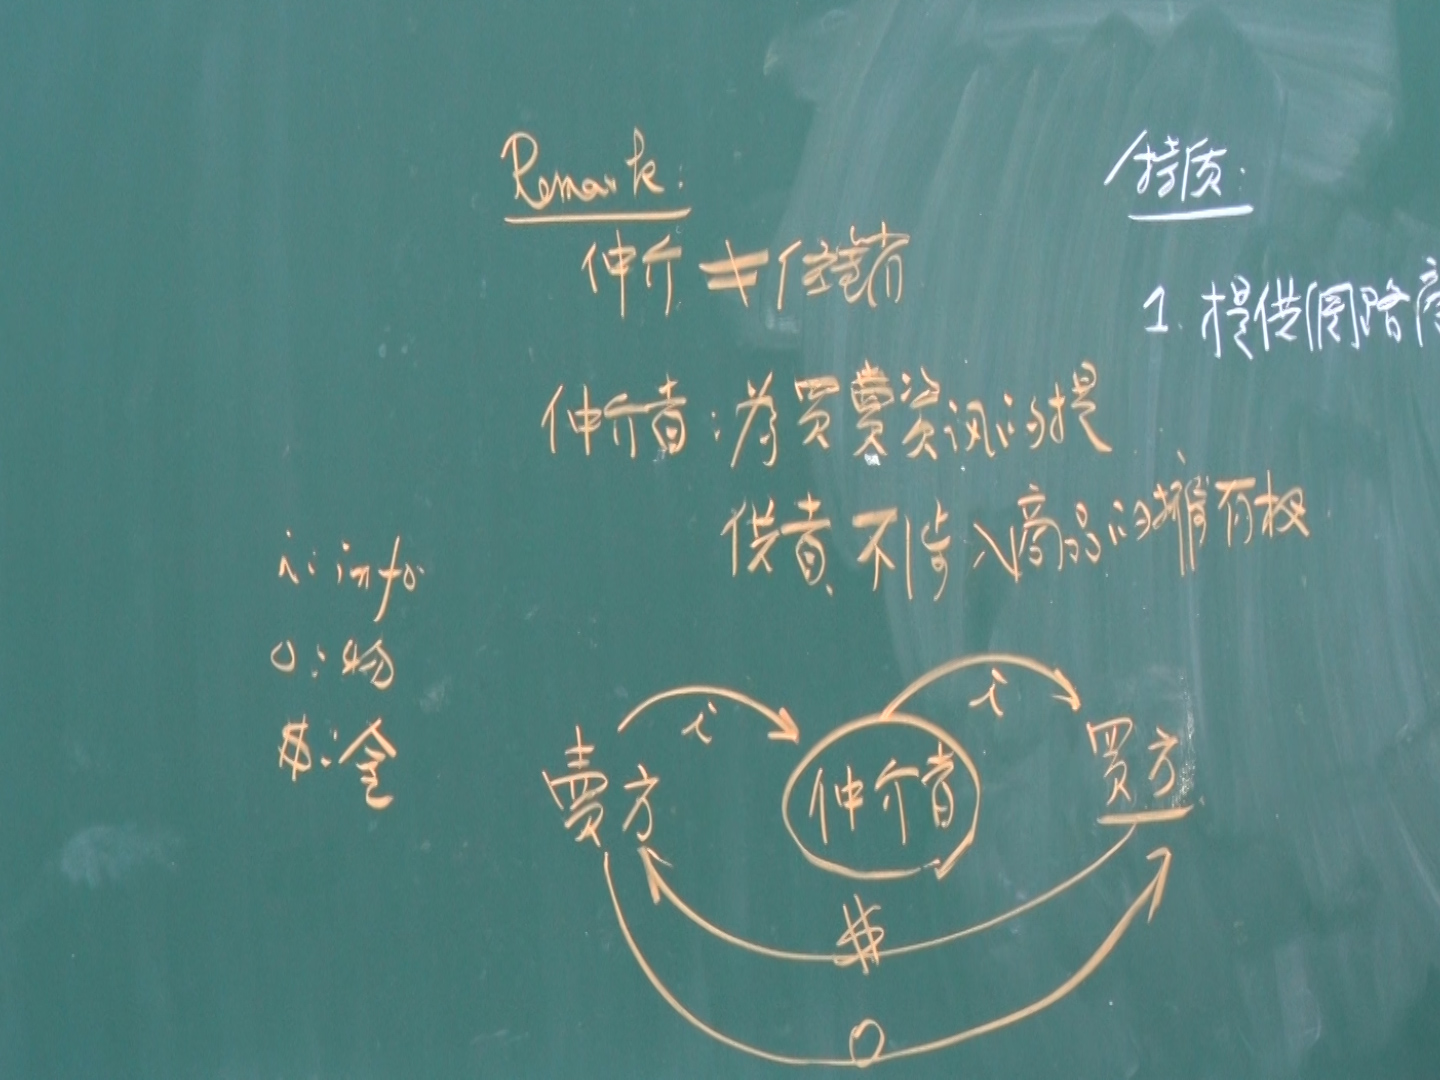 Remark:
仲介 ≠ 經銷
仲介者:为買賣資讯的提
供者,不涉入商品的擁有权.
i: info.
O: 物
$: 金
i
i
賣方
仲介者
買方
$
O
特质:
1. 提供网路商